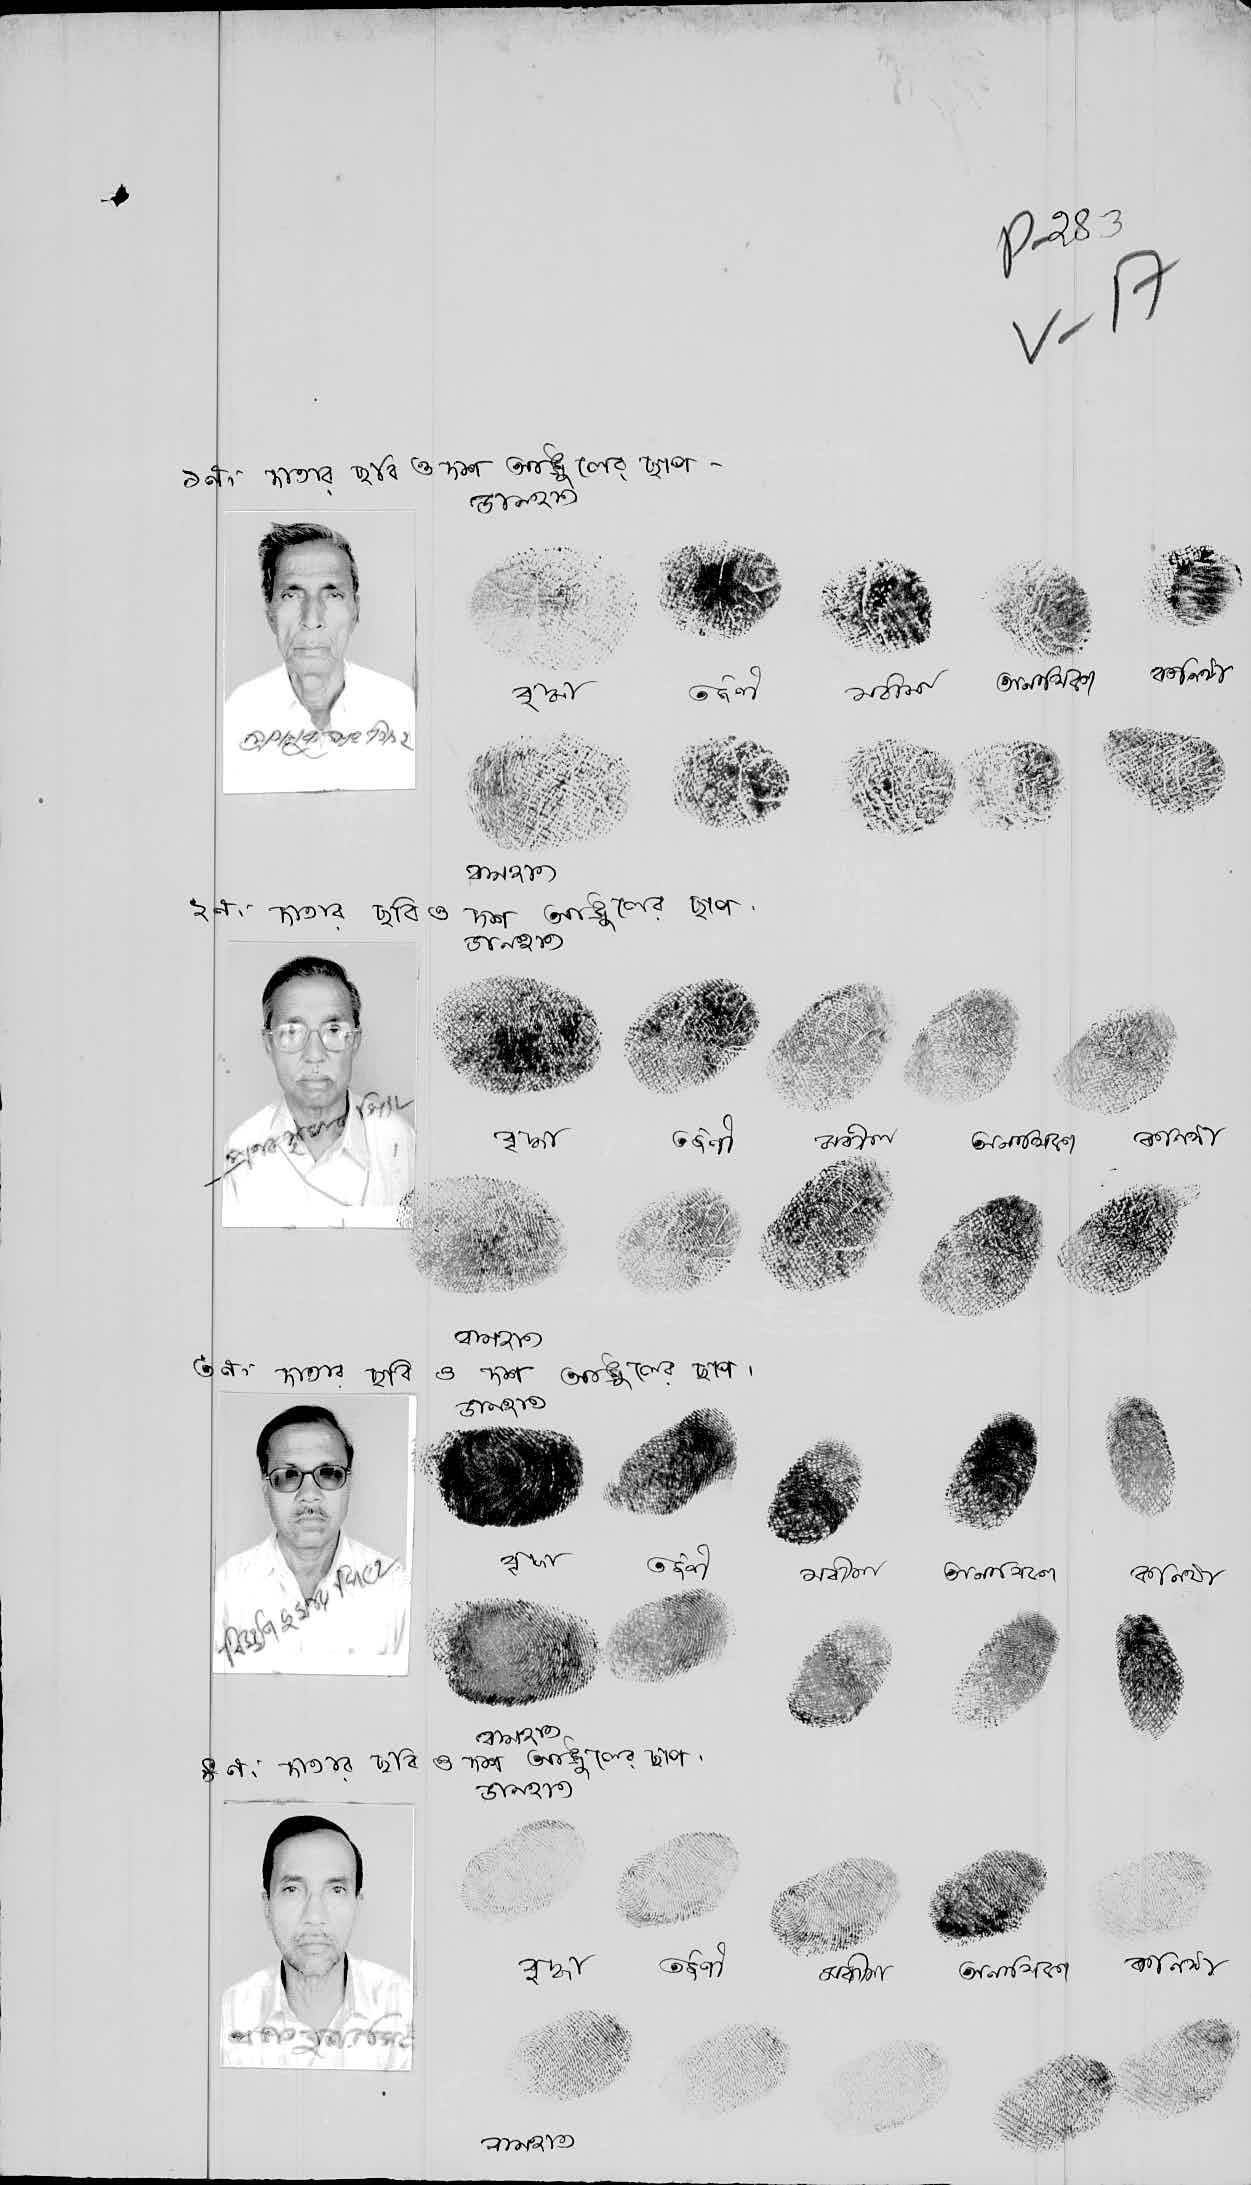 P-283
V-17
১নং দাতার ছবি ও দশ আঙ্গুলের ছাপ -
ডানহাত
বৃদ্ধা তর্জনী মধ্যমা অনামিকা কনিষ্ঠা
কুমার সিংহ
বামহাত
২নং দাতার ছবি ও দশ আঙ্গুলের ছাপ ।
ডানহাত
কুমার সিংহ
বৃদ্ধা তর্জনী মধ্যমা অনামিকা কনিষ্ঠা
বামহাত
৩নং দাতার ছবি ও দশ আঙ্গুলের ছাপ ।
ডানহাত
বৃদ্ধা তর্জনী মধ্যমা অনামিকা কনিষ্ঠা
কুমার সিংহ
বামহাত
৪নং দাতার ছবি ও দশ আঙ্গুলের ছাপ ।
ডানহাত
বৃদ্ধা তর্জনী মধ্যমা অনামিকা কনিষ্ঠা
কুমার সিংহ
বামহাত